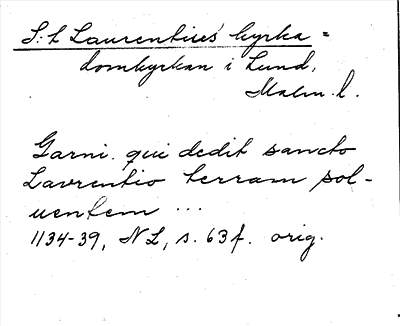 S:t Laurentius' kyrka =
domkyrkan i Lund,
Malm. l.
Garni. qui dedit sancto
Lavrentio terram sol-
uentem ...
1134-39, NL, s. 63f. orig.